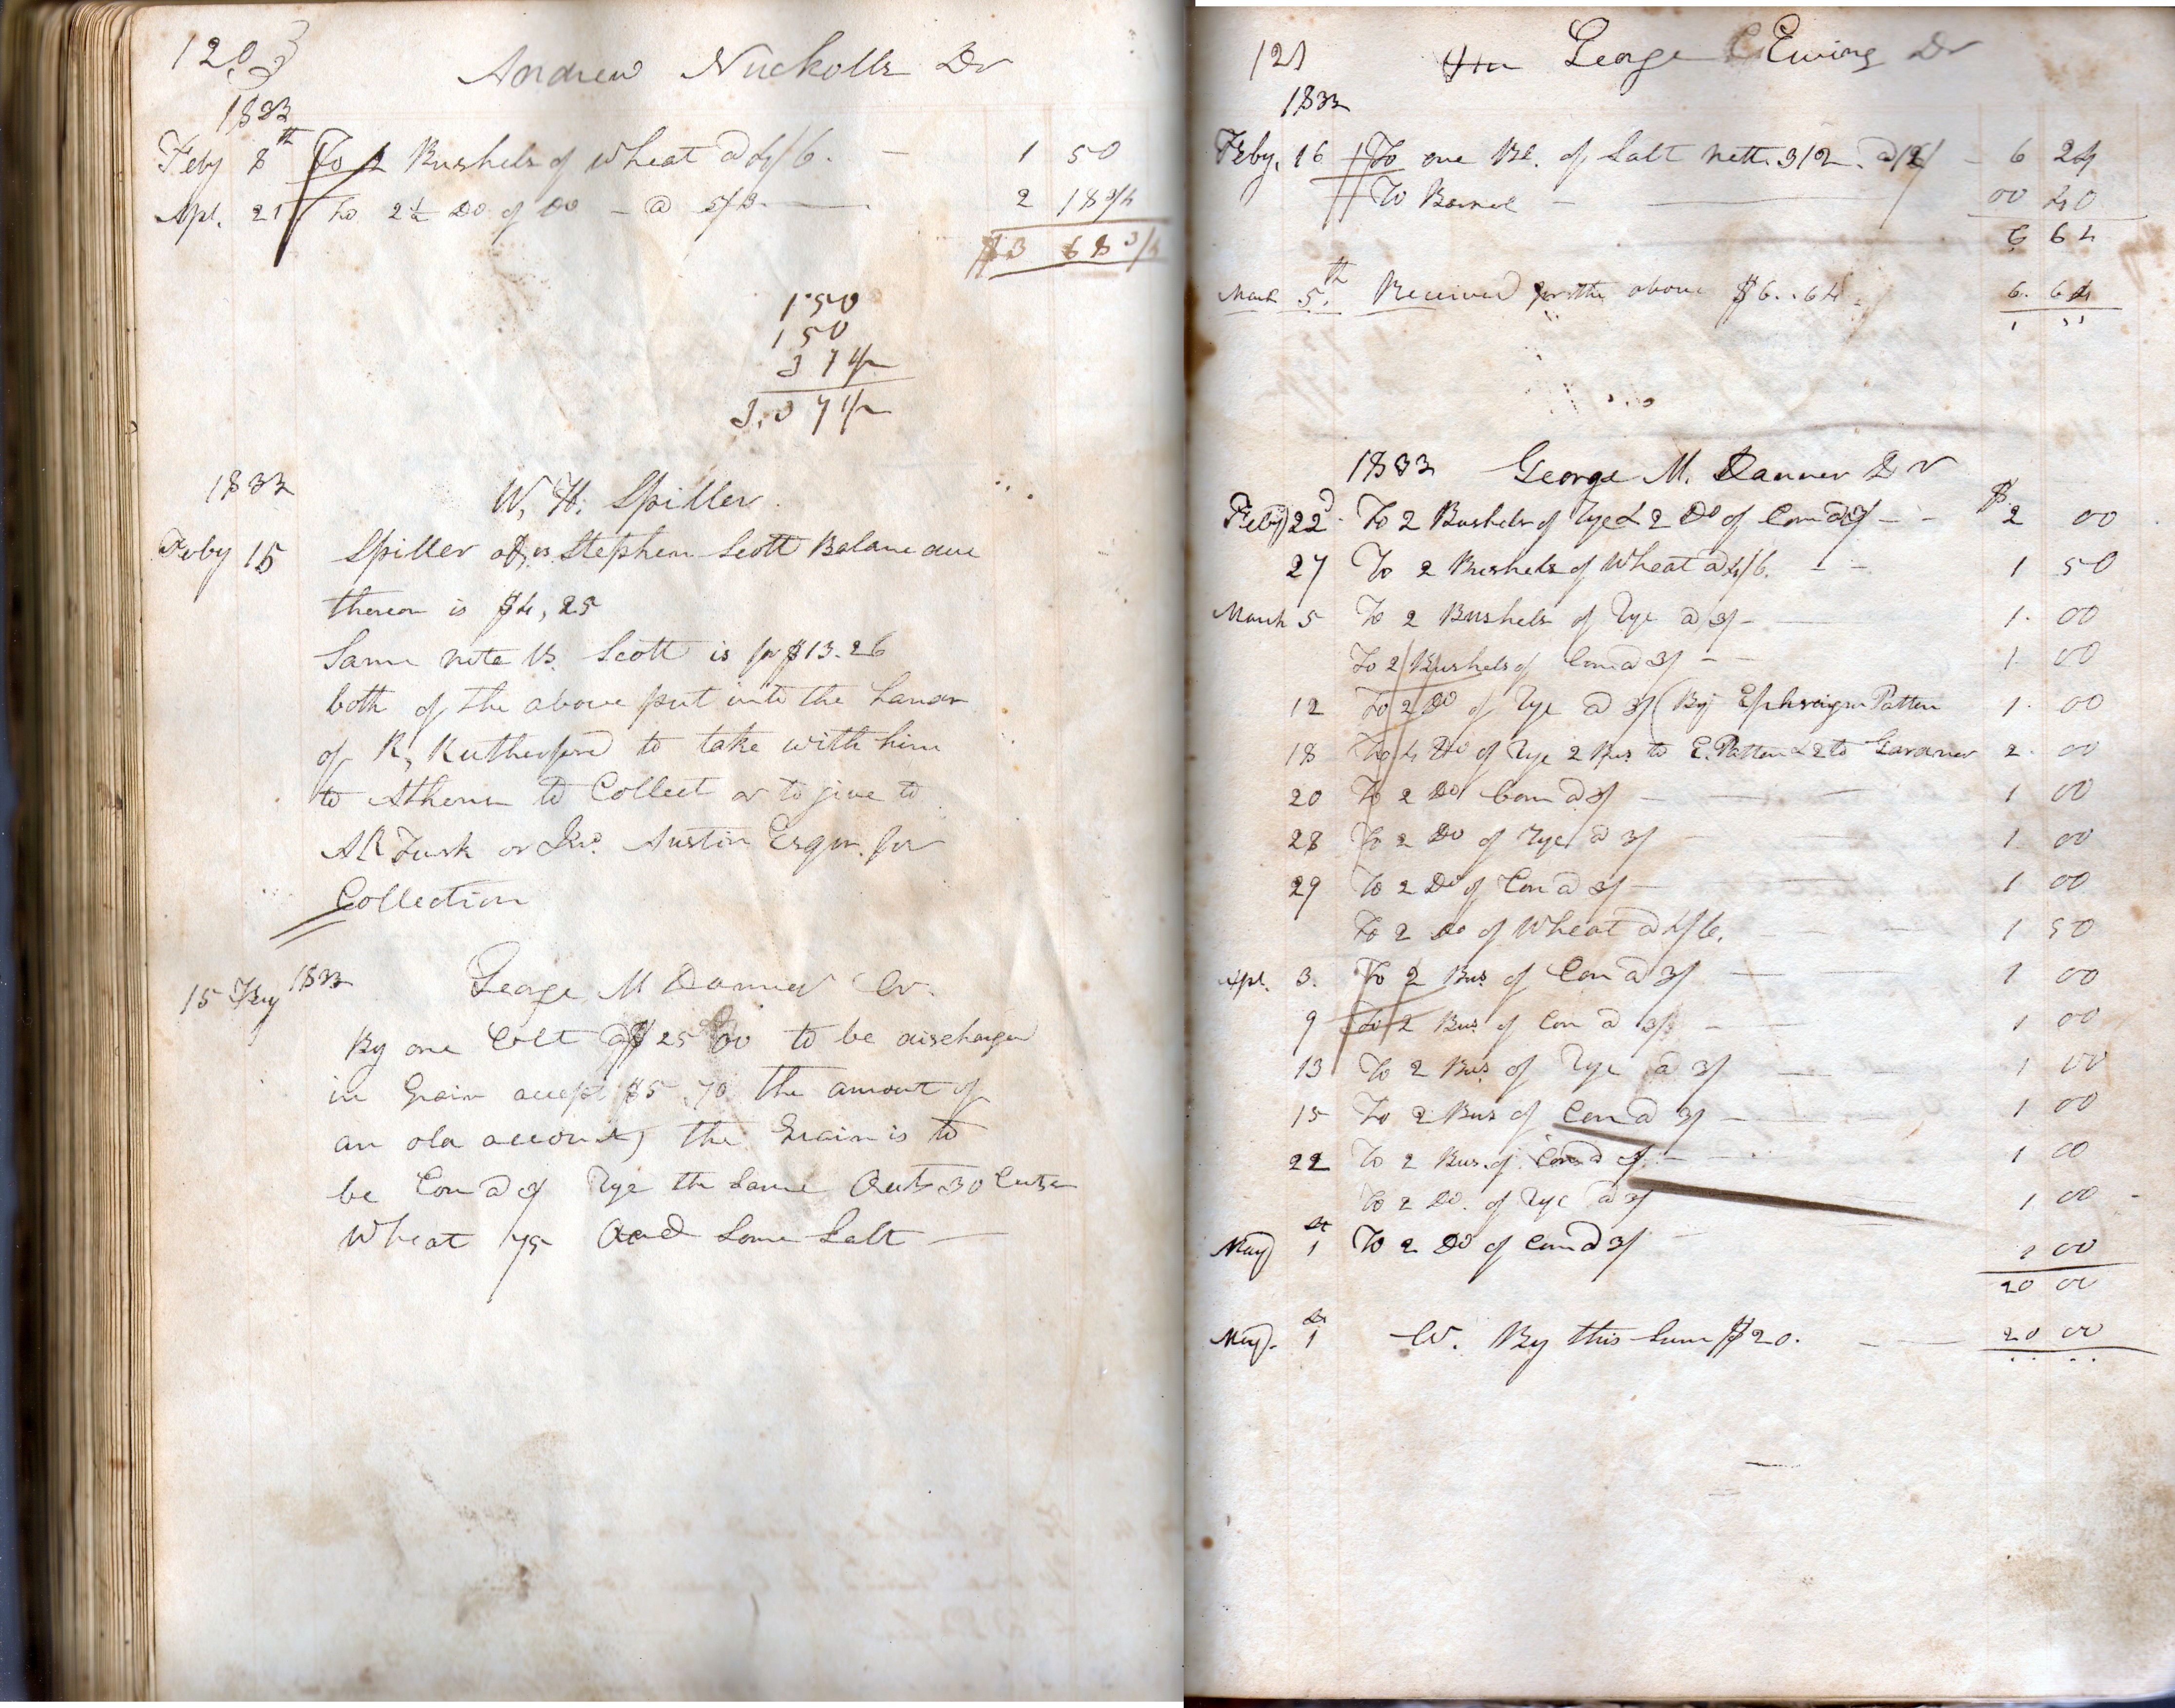 120
Andrew Nuckolls Dr
1833
Feby 8th To 2 Bushels of Wheat @ 4/6. — 1 50
Apl. 21 To 2½ Do of Do — @ 5/3 — 2 18 3/4
$3 68 3/4
1.50
1 50
37 1/2
3.37 1/2
1833
W. H. Spiller
Feby 15 Spiller vs. Stephen Scott Balance due
thereon is $4,25
Same note vs. Scott is for $13.26
both of the above put into the hands
of R, Rutherford to take with him
to Athens to Collect or to give to
or Jno. Austin Esqr. for
Collection
15 Feby 1833 George M Danner Cr.
By one Colt @ $25 00 to be discharged
in Grain accept $5.70 the amount of
an old account, the Grain is to
be Corn @ 3/ Rye the same Oats 30 Cents
Wheat 75 And some Salt —
121
George C Ewing Dr
1833
Feby, 16 To one Bl. of Salt nett. 312. @ 12/ — 6 24
To Barrel — 00 40
6 64
March 5th Received for the above $6..64 6. 64
1833 George M. Danner Dr
Feby 22d To 2 Bushels of Rye & 2 Do of Corn @ 3/ — — $2 00
27 To 2 Bushels of Wheat @ 4/6. — — 1 50
March 5 To 2 Bushels of Rye @ 3/ — 1. 00
To 2 Bushels of Corn @ 3/ — — 1. 00
12 To 2 Do of Rye @ 3/ (By Ephraigm Patten 1. 00
18 To 4 Do of Rye 2 Bus to E. Patten & 2 to Gardner 2. 00
20 To 2 Do Corn @ 3/ — 1 00
28 To 2 Do of Rye @ 3/ 1. 00
29 To 2 Do of Corn @ 3/ — 1 00
To 2 Do of Wheat @ 4/6. 1 50
Apl. 3. To 2 Bus of Corn @ 3/ — 1 00
9 To 2 Bus. of Corn @ 3/ — 1 00
13 To 2 Bus of Rye @ 3/ — 1 00
15 To 2 Bus of Corn @ 3/ — 1 00
22 To 2 Bus. of Corn @ 3/ — 1 00
To 2 Do. of Rye @ 3/ 1 00
May 1st To 2 Do of Corn @ 3/ — 1 00
20 00
May. 1st Cr. By this Sum $20. — 20 00